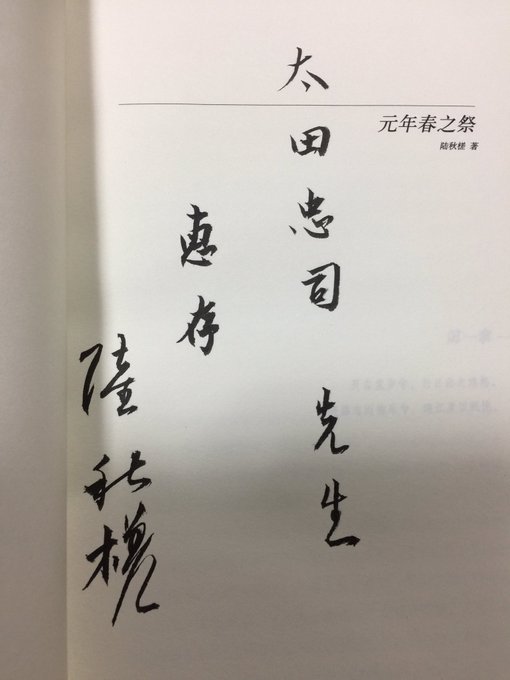 元年春之祭
陆秋槎 著
太田忠司 先生
惠存
陸秋槎